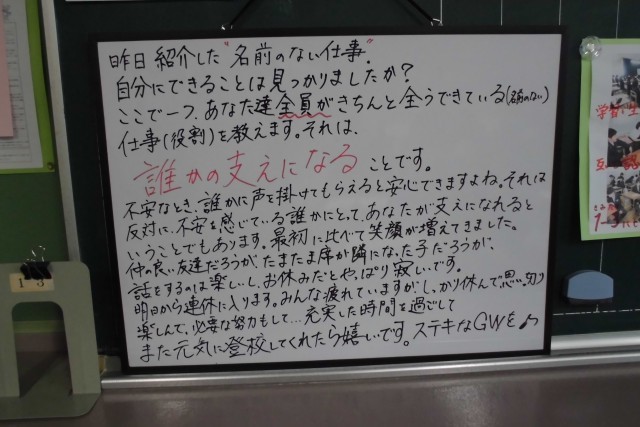 昨日紹介した"名前のない仕事"。
自分にできることは見つかりましたか?
ここで一つ、あなた達全員がきちんと全うできている(名前のない)
仕事(役割)を教えます。それは、
誰かの支えになる ことです。
不安なとき、誰かに声を掛けてもらえると安心できますよね。それは
反対に、不安を感じている誰かにとって、あなたが支えになれると
いうことでもあります。最初に比べて笑顔が増えてきました。
仲の良い友達だろうが、たまたま席が隣になった子だろうが、
話をするのは楽しいし、お休みだとやっぱり寂しいです。
明日から連休に入ります。みんな疲れていますが、しっかり休んで思い切り
楽しんで、必要な努力もして…充実した時間を過ごして
また元気に登校してくれたら嬉しいです。ステキなGWを♪
13
学
生
互
1-3